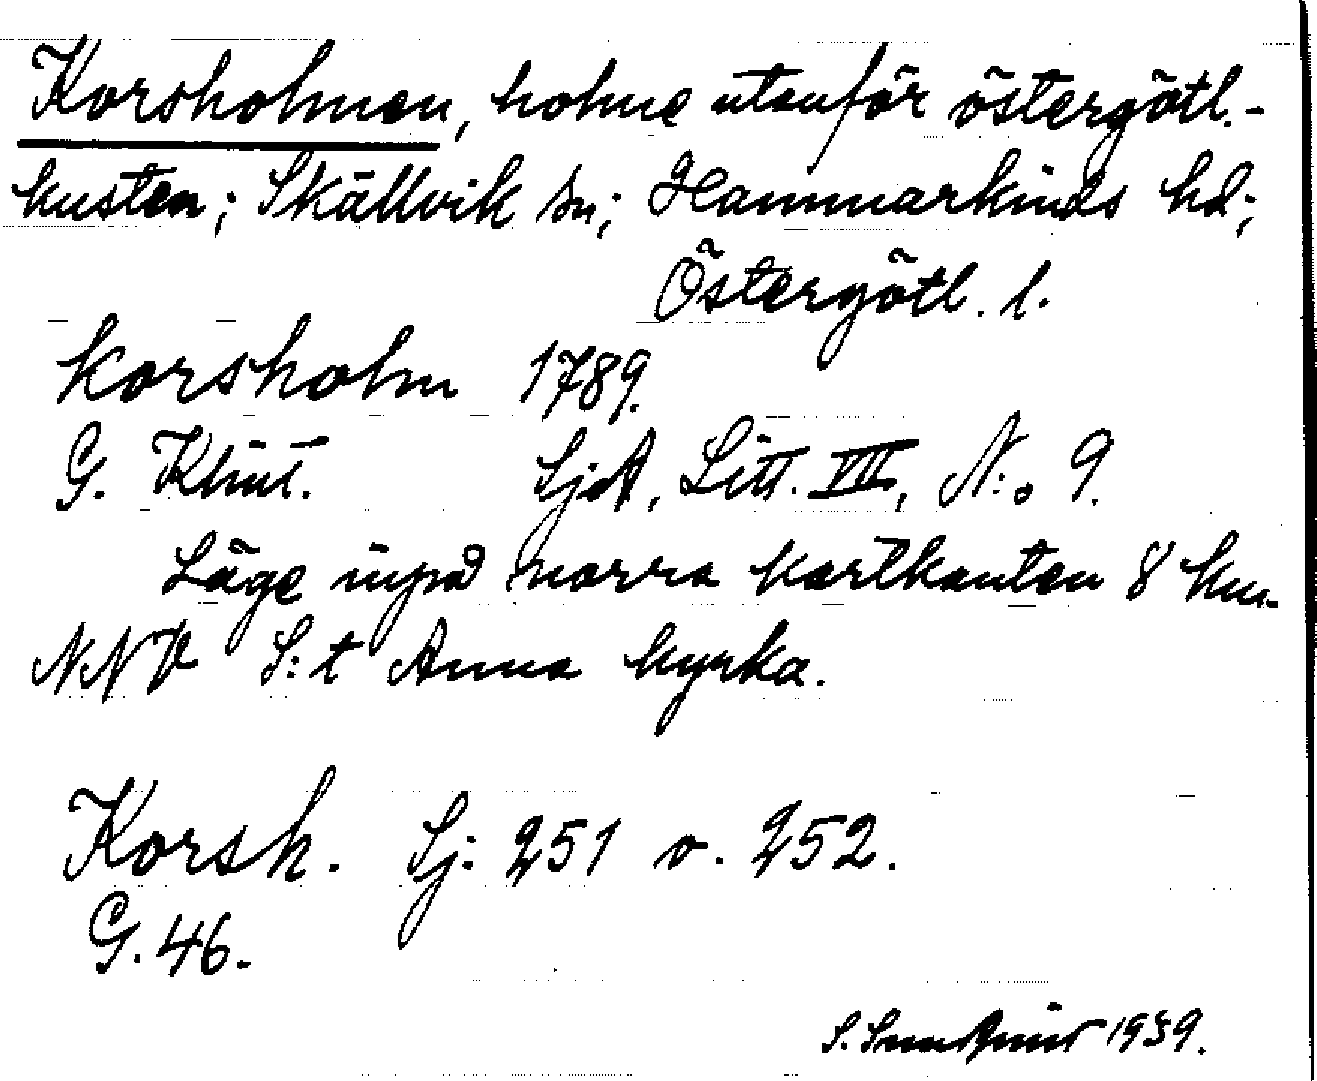 Korsholmen, holme utanför östergötl.-
kusten; Skällvik sn; Hammarkinds hd;
Östergötl. l.
Korsholm 1789.
G. Klint. SjA, Litt. VII, N:o 9.
Läge uppå norra kartkanten 8 km.
NNV S:t Anna kyrka.
Korsh. Sj. 251 o. 252.
G. 46.
S. 1939.